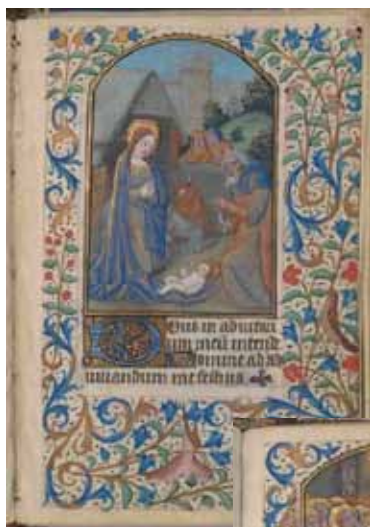 Deus in adiutori
um meu intende
Domine ad ad
iuuandum me festina